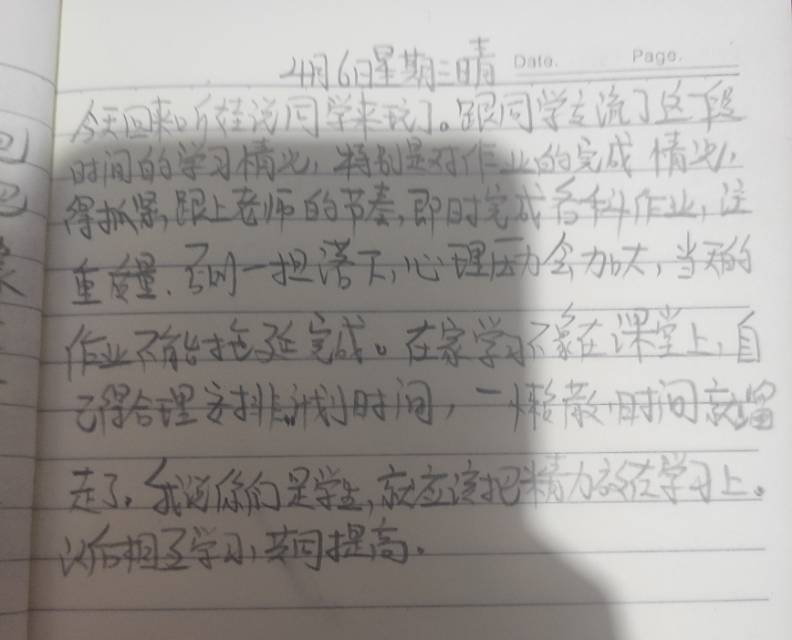 4月6日星期三晴
Date. Page.
今天回来听 说同学来玩了。跟同学交流了这一段
时间的学习情况,特别是对作业的完成情况,
得抓紧,跟上老师的节奏,即时完成各科作业,注
重质量.否则一担落下,心理压力会加大,当天的
作业不能拖延完成。在家学习不象在课堂上,自
己得合理安排计划时间,一懒散,时间就溜
走了。我说你们是学生,就应该把精力放在学习上。
以后相互学习,共同提高.